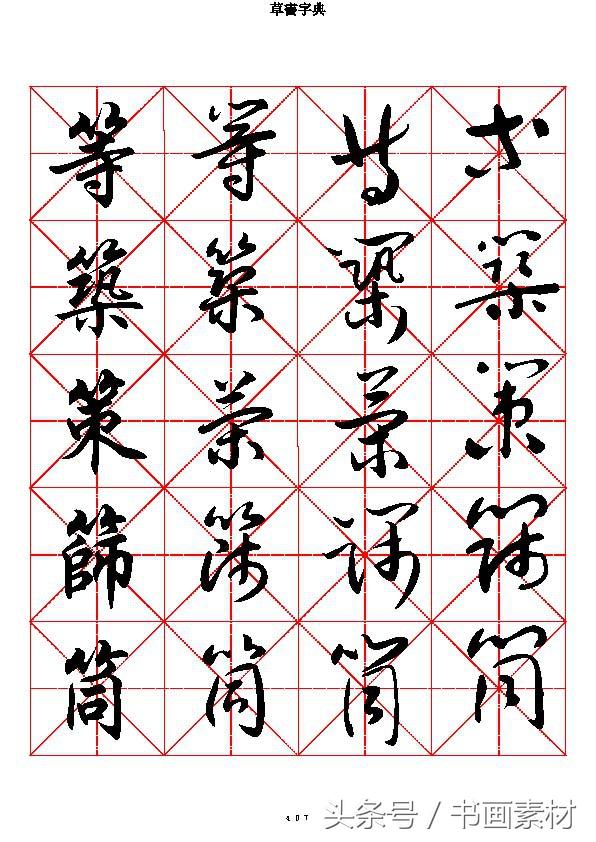 草書字典
等 等 等 等
築 築 築 築
策 策 策 策
篩 篩 篩 篩
筒 筒 筒 筒
407
头条号 / 书画素材